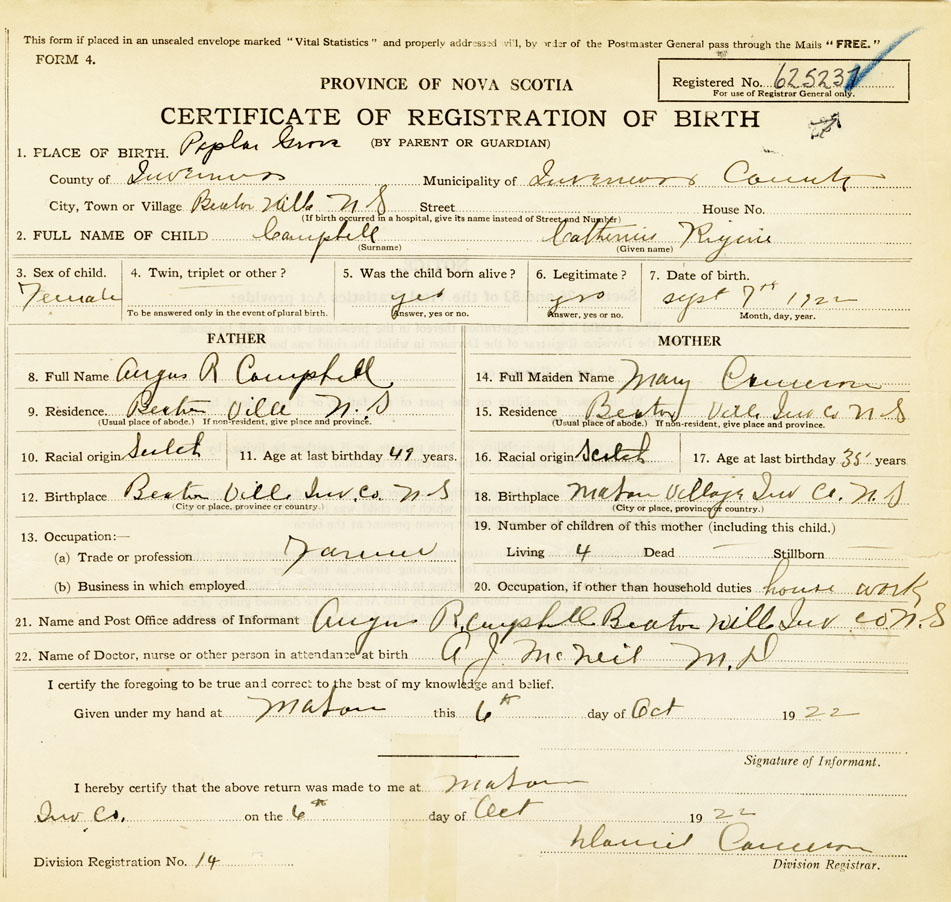 This form if placed in an unsealed envelope marked "Vital Statistics" and properly addressed will, by order of the Postmaster General pass through the Mails "FREE."
FORM 4.
Registered No. 625231
For use of Registrar General only.
PROVINCE OF NOVA SCOTIA
CERTIFICATE OF REGISTRATION OF BIRTH
(BY PARENT OR GUARDIAN)
1. PLACE OF BIRTH. Poplar Grove
County of Inverness Municipality of Inverness County
City, Town or Village Beaton Ville N S Street House No.
(If birth occurred in a hospital, give its name instead of Street and Number)
2. FULL NAME OF CHILD Campbell Catherine
(Surname) (Given name)
3. Sex of child. 4. Twin, triplet or other? 5. Was the child born alive? 6. Legitimate? 7. Date of birth.
Female yes yes sept 7th 1922
To be answered only in the event of plural birth. Answer, yes or no. Answer, yes or no. Month, day, year.
FATHER MOTHER
8. Full Name Angus R Campbell 14. Full Maiden Name Mary Cameron
9. Residence. Beaton Ville N.S 15. Residence Beaton Ville Inv Co N-S
(Usual place of abode.) If non-resident, give place and province. (Usual place of abode.) If non-resident, give place and province.
10. Racial origin Scotch 11. Age at last birthday 49 years. 16. Racial origin Scotch 17. Age at last birthday 35 years
12. Birthplace Beaton Ville Inv. Co. N-S 18. Birthplace Mabou Village Inv Co. N.S
(City or place, province or country.) (City or place, province or country.)
13. Occupation:— 19. Number of children of this mother (including this child.)
(a) Trade or profession Farmer Living 4 Dead — Stillborn —
(b) Business in which employed 20. Occupation, if other than household duties house work
21. Name and Post Office address of Informant Angus R. Campbell Beaton Ville Inv Co N-S
22. Name of Doctor, nurse or other person in attendance at birth A J. McNeil M.D
I certify the foregoing to be true and correct to the best of my knowledge and belief.
Given under my hand at Mabou this 6th day of Oct 1922
Signature of Informant.
I hereby certify that the above return was made to me at Mabou
Inv Co. on the 6th day of Oct 1922
Daniel Cameron
Division Registration No. 14 Division Registrar.